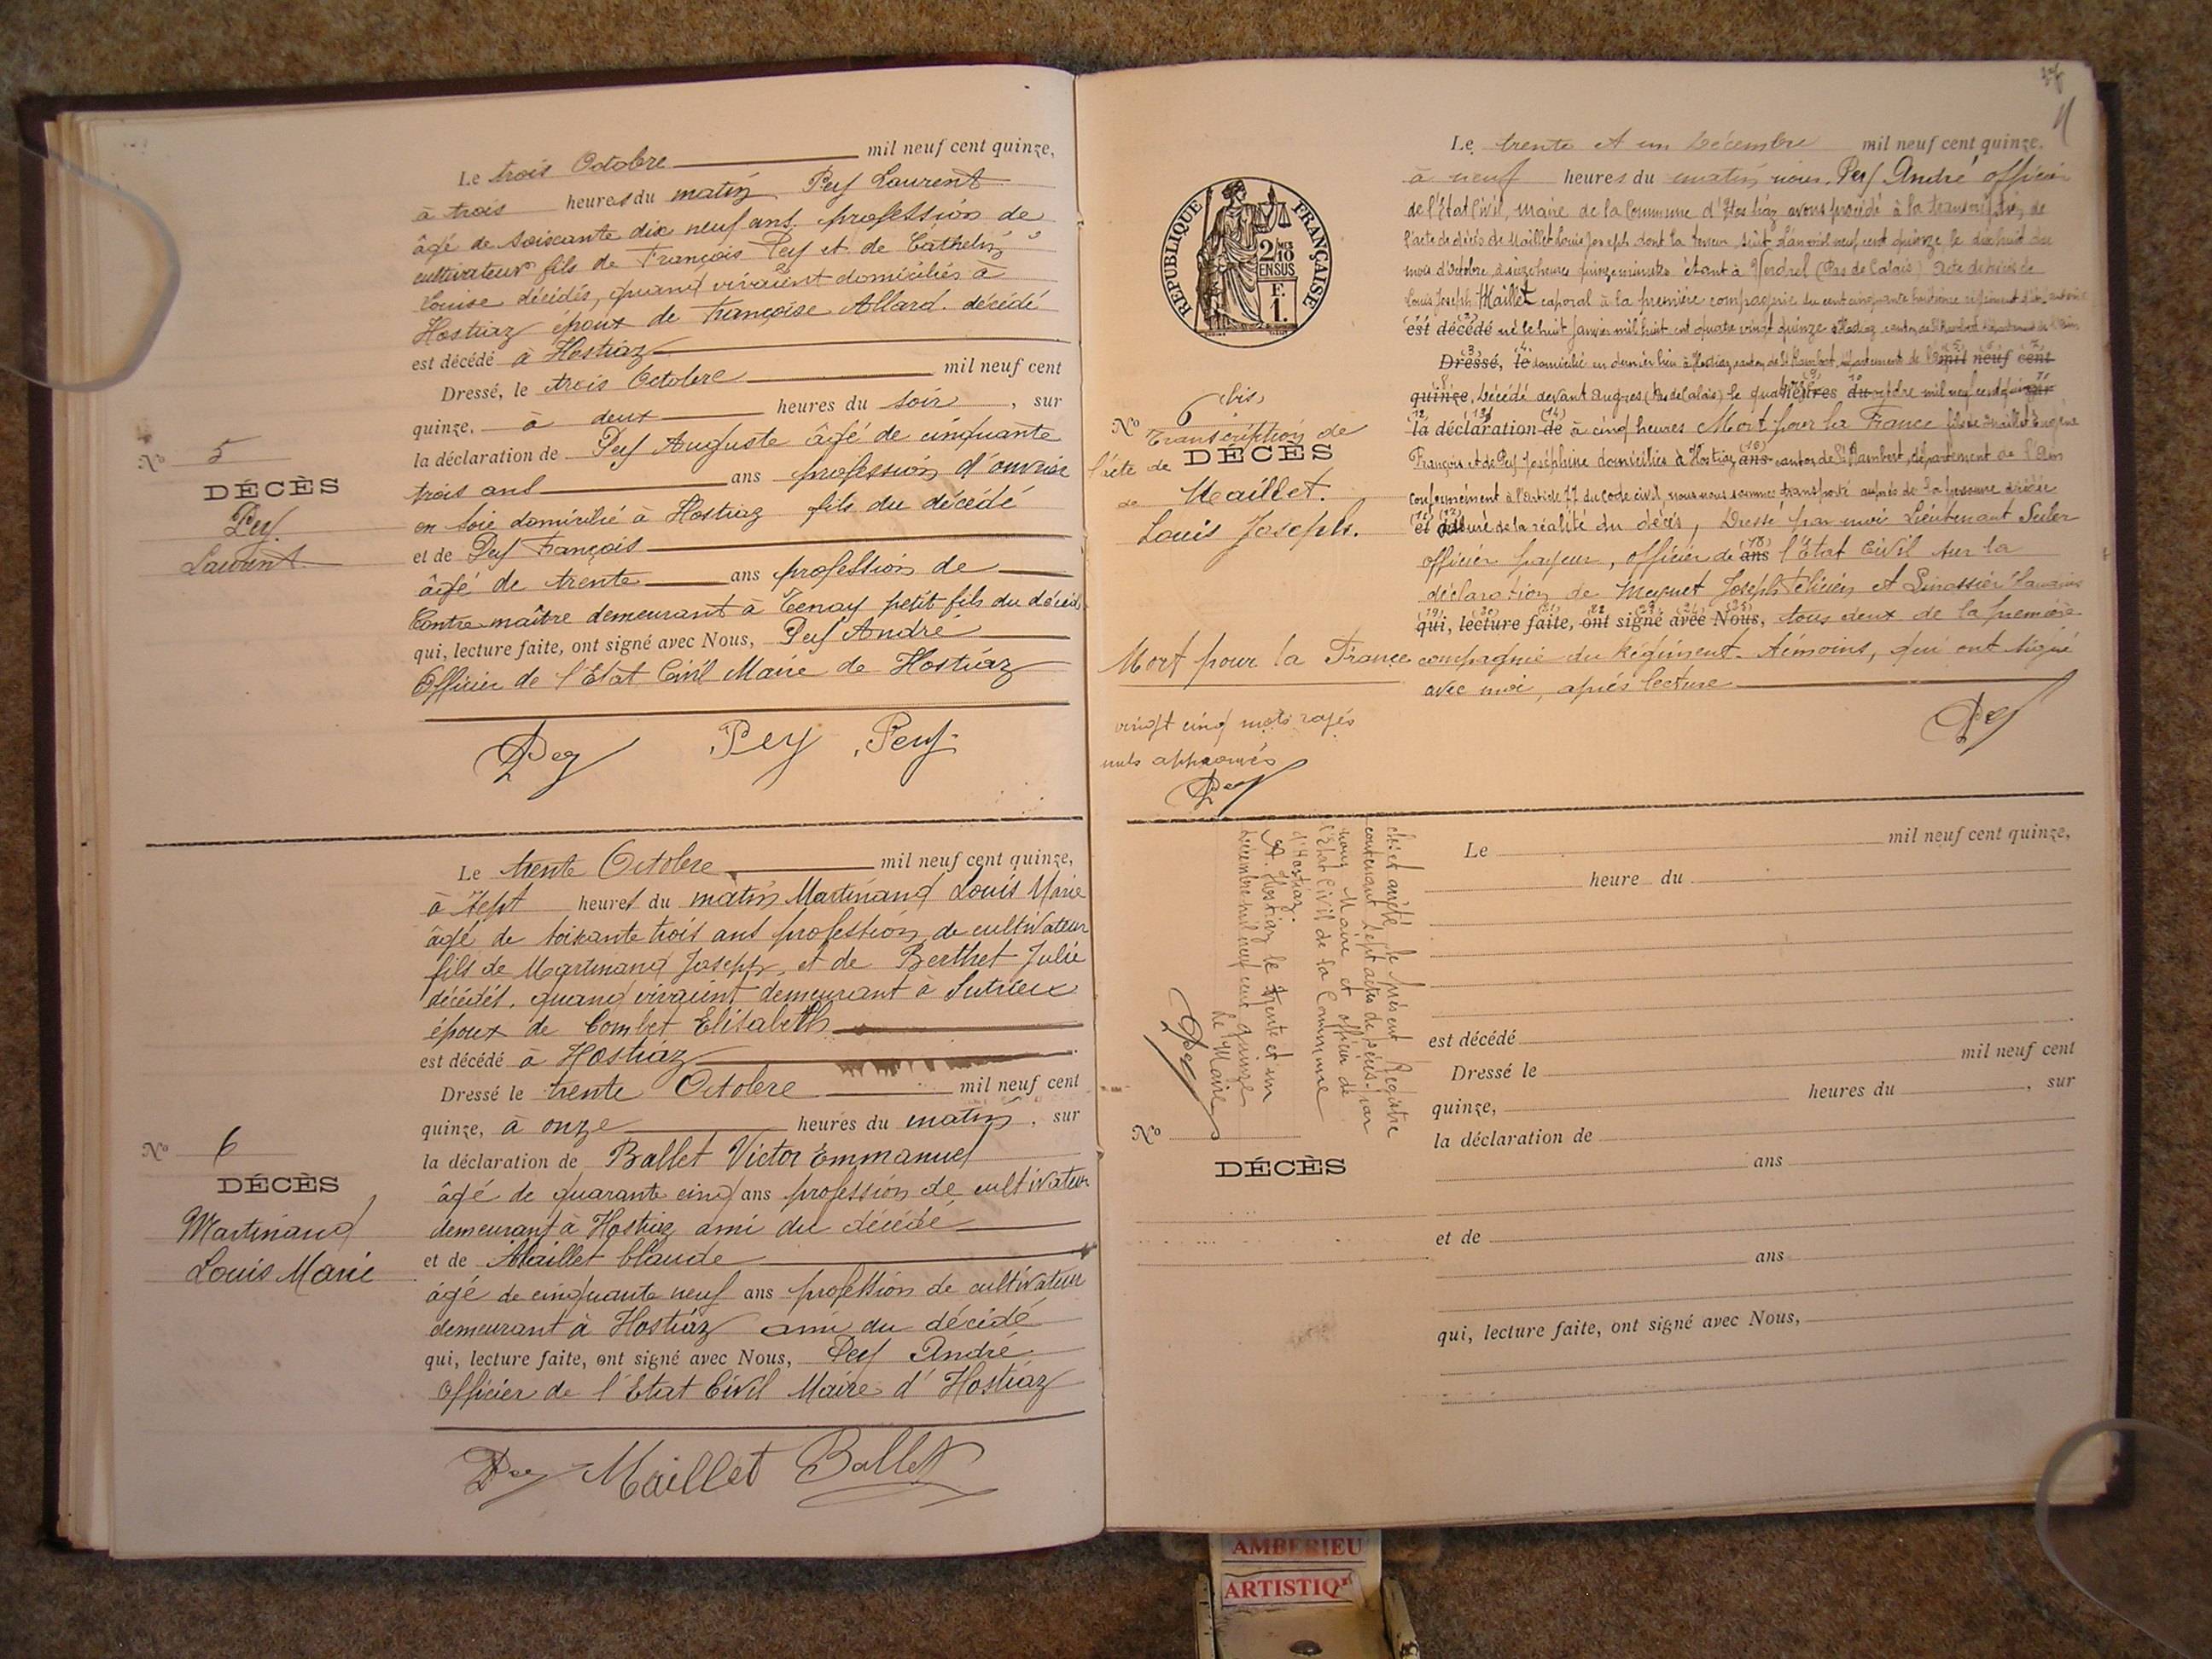 Le trois Octobre mil neuf cent quinze,
à trois heures du matin Pey Laurent
âgé de soixante dix neuf ans, profession de
cultivateur fils de François Pey et de Cathelin
Louise décédés, quand vivaient domiciliés à
Hostiaz époux de Françoise Allard. décédé
est décédé à Hostiaz
Dressé, le trois Octobre mil neuf cent
quinze, à deux heures du soir, sur
la déclaration de Pey Auguste âgé de cinquante
trois ans ans profession d'ouvrier
en soie domicilié à Hostiaz fils du décédé
et de Pey François
âgé de trente ans profession de
Contre-maître demeurant à Tenay petit fils du décédé
qui, lecture faite, ont signé avec Nous, Pey André
Officier de l'Etat Civil Maire de Hostiaz
Pey Pey Pey
No 5
DÉCÈS
Pey
Laurent
Le trente Octobre mil neuf cent quinze,
à sept heures du matin Martinand Louis Marie
âgé de soixante trois ans profession de cultivateur
fils de Martinand Joseph, et de Berthet Julie
décédés, quand vivaient demeurant à Sutrieu
époux de Combet Elisabeth
est décédé à Hostiaz
Dressé le trente Octobre mil neuf cent
quinze, à onze heures du matin, sur
la déclaration de Ballet Victor Emmanuel
âgé de quarante cinq ans profession de cultivateur
demeurant à Hostiaz ami du décédé
et de Maillet Claude
âgé de cinquante neuf ans profession de cultivateur
demeurant à Hostiaz ami du décédé
qui, lecture faite, ont signé avec Nous, Pey André
Officier de l'Etat Civil Maire d'Hostiaz
Pey Maillet Ballet
No 6
DÉCÈS
Martinand
Louis Marie
RÉPUBLIQUE FRANÇAISE
2/10
EN SUS
F.
1.
No 6 bis
Transcription de
l'acte de DÉCÈS
de Maillet.
Louis Joseph.
Mort pour la France
vingt cinq mots rayés
nuls approuvés
Pey
Le trente et un Décembre mil neuf cent quinze,
à neuf heures du matin nous Pey André officier
de l'Etat Civil, maire de la Commune d'Hostiaz avons procédé à la transcription de
l'acte de décès de Maillet Louis Joseph dont la teneur suit L'an mil neuf cent quinze le dix huit du
mois d'Octobre, à seize heures quinze minutes étant à Verdrel (Pas de Calais) Acte de décès de
Louis Joseph Maillet caporal à la première compagnie du cent cinquante huitième régiment d'infanterie
est décédé né le huit janvier mil huit cent quatre vingt quinze à Hostiaz canton de St Rambert département de l'Ain
Dressé, le domicilié en dernier lieu à Hostiaz, canton de St Rambert, département de l'Ain mil neuf cent
quinze, Décédé devant Angres (Pas de Calais) le quatre heures du octobre mil neuf cent quinze sur
la déclaration de à cinq heures Mort pour la France fils de Maillet Eugène
François et de Pey Joséphine domiciliés à Hostiaz ans canton de St Rambert, département de l'Ain
Conformément à l'article 77 du Code civil, nous nous sommes transporté auprès de la personne décédée
et de assuré de la réalité du décès, Dressé par moi Lieutenant Suter
officier payeur, officier de ans l'Etat Civil sur la
déclaration de Muguet Joseph Félicien et Linossier
qui, lecture faite, ont signé avec Nous, tous deux de la première
compagnie du Régiment. témoins, qui ont signé
avec moi, après lecture
Pey
Clos et arrêté le présent Registre
contenant sept actes de décès par
nous Maire et officier de
l'Etat Civil de la Commune
d'Hostiaz.
A Hostiaz le trente et un
Décembre mil neuf cent quinze
Le Maire
Pey
No
DÉCÈS
Le mil neuf cent quinze,
heure du
est décédé
Dressé le mil neuf cent
quinze, heures du , sur
la déclaration de
ans
et de
ans
qui, lecture faite, ont signé avec Nous,
AMBERIEU
ARTISTIQ